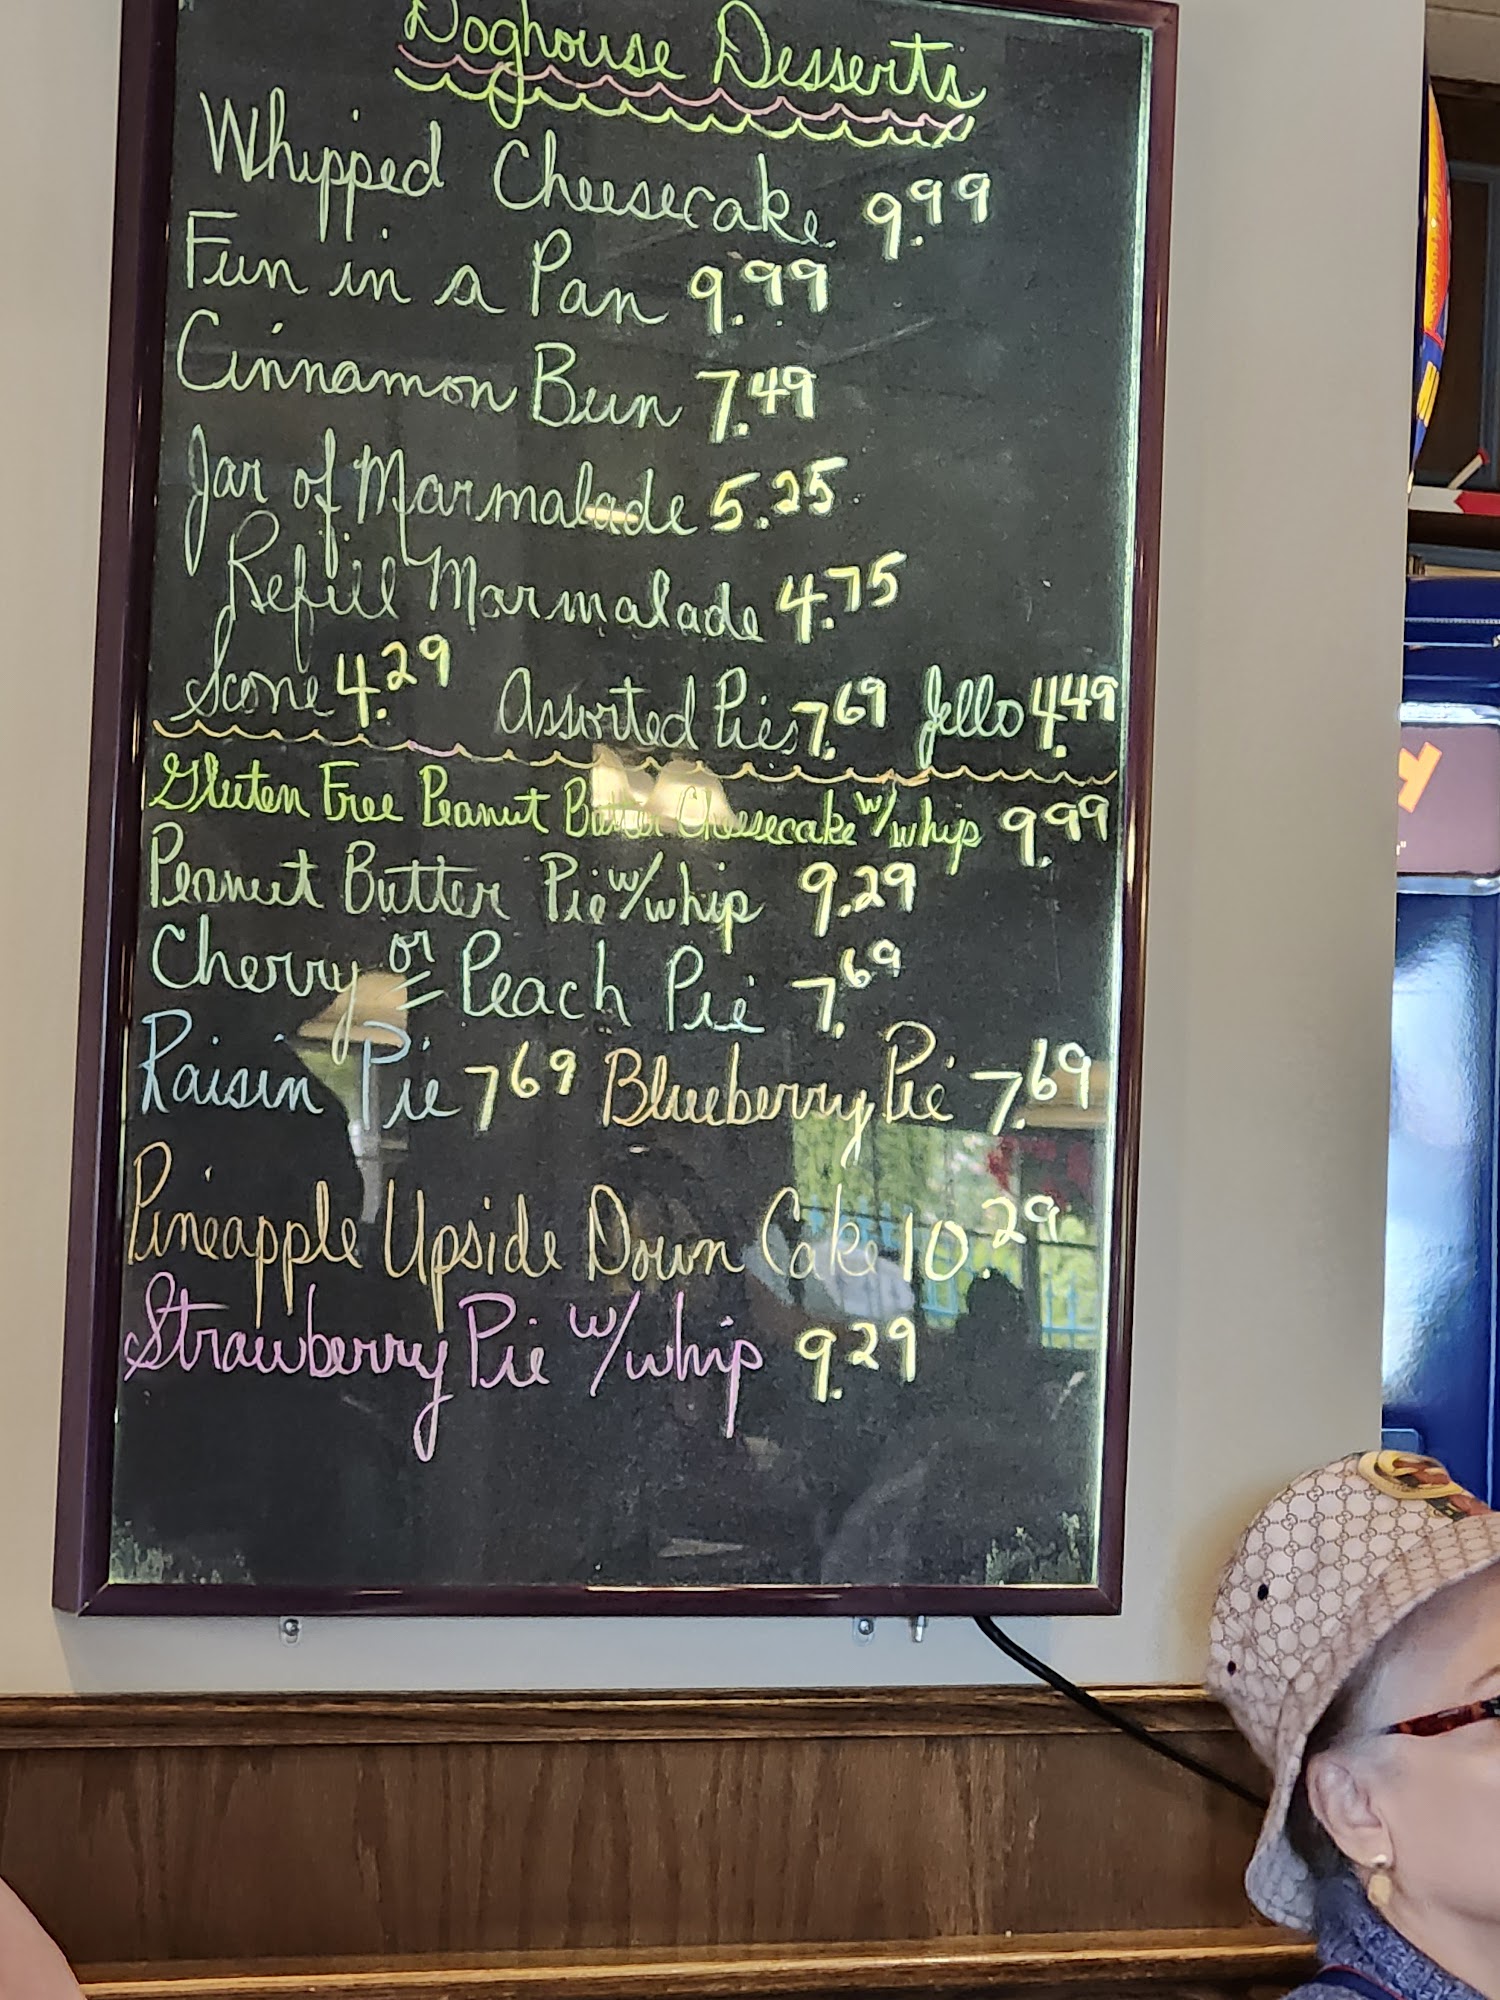 Doghouse Desserts
Whipped Cheesecake 9.99
Fun in a Pan 9.99
Cinnamon Bun 7.49
Jar of Marmalade 5.25
Refill Marmalade 4.75
Scone 4.29 Assorted Pies 7.69 Jello 4.49
Gluten Free Peanut Butter Cheesecake w/whip 9.99
Peanut Butter Pie w/whip 9.29
Cherry or Peach Pie 7.69
Raisin Pie 7 69 Blueberry Pie 7.69
Pineapple Upside Down Cake 10.29
Strawberry Pie w/whip 9.29